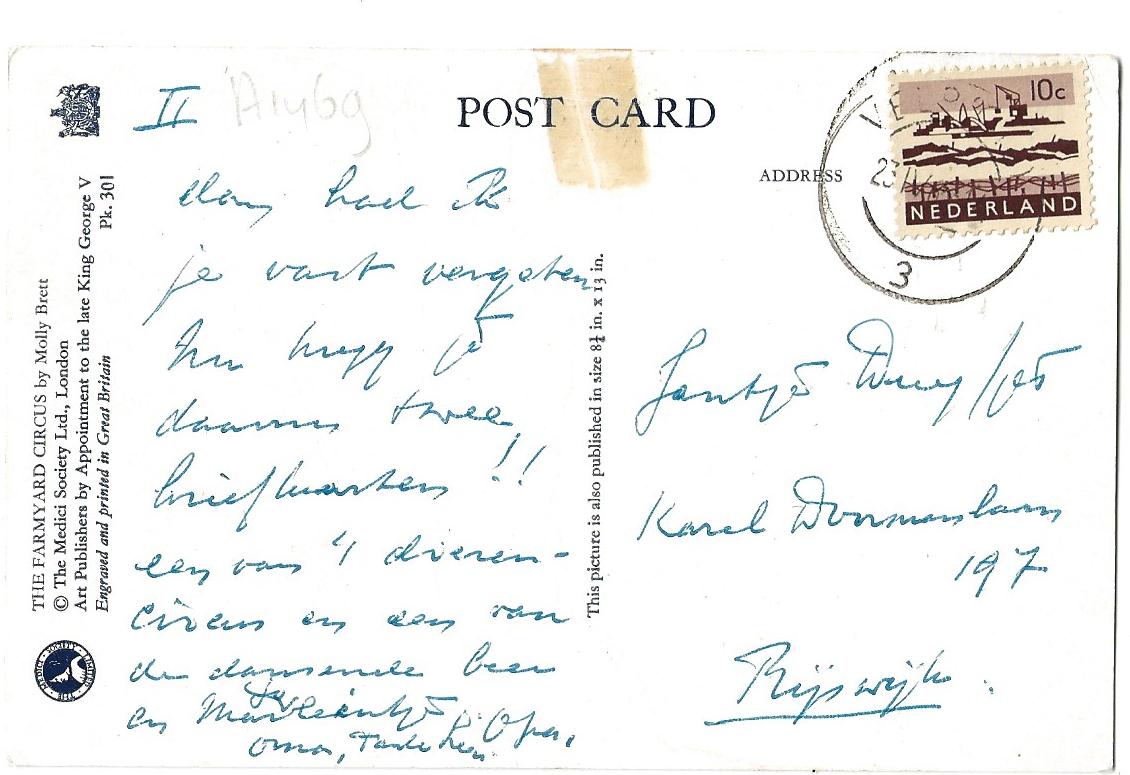 II
A1469
POST CARD
ADDRESS
10c
NEDERLAND
3
THE FARMYARD CIRCUS by Molly Brett
© The Medici Society Ltd., London
Art Publishers by Appointment to the late King George V
Engraved and printed in Great Britain
Pk. 301
had ik
je vast vergeten
Nu krijg je
daarom twee
briefkaarten !!
een van 't dieren-
circus en een van
de dansende beer
en Opa,
Oma, Tante
This picture is also published in size 8¾ in. x 13 in.
Jantje
Karel Doormanlaan
197
Rijswijk.
MEDICI SOCIETY LIMITED THE